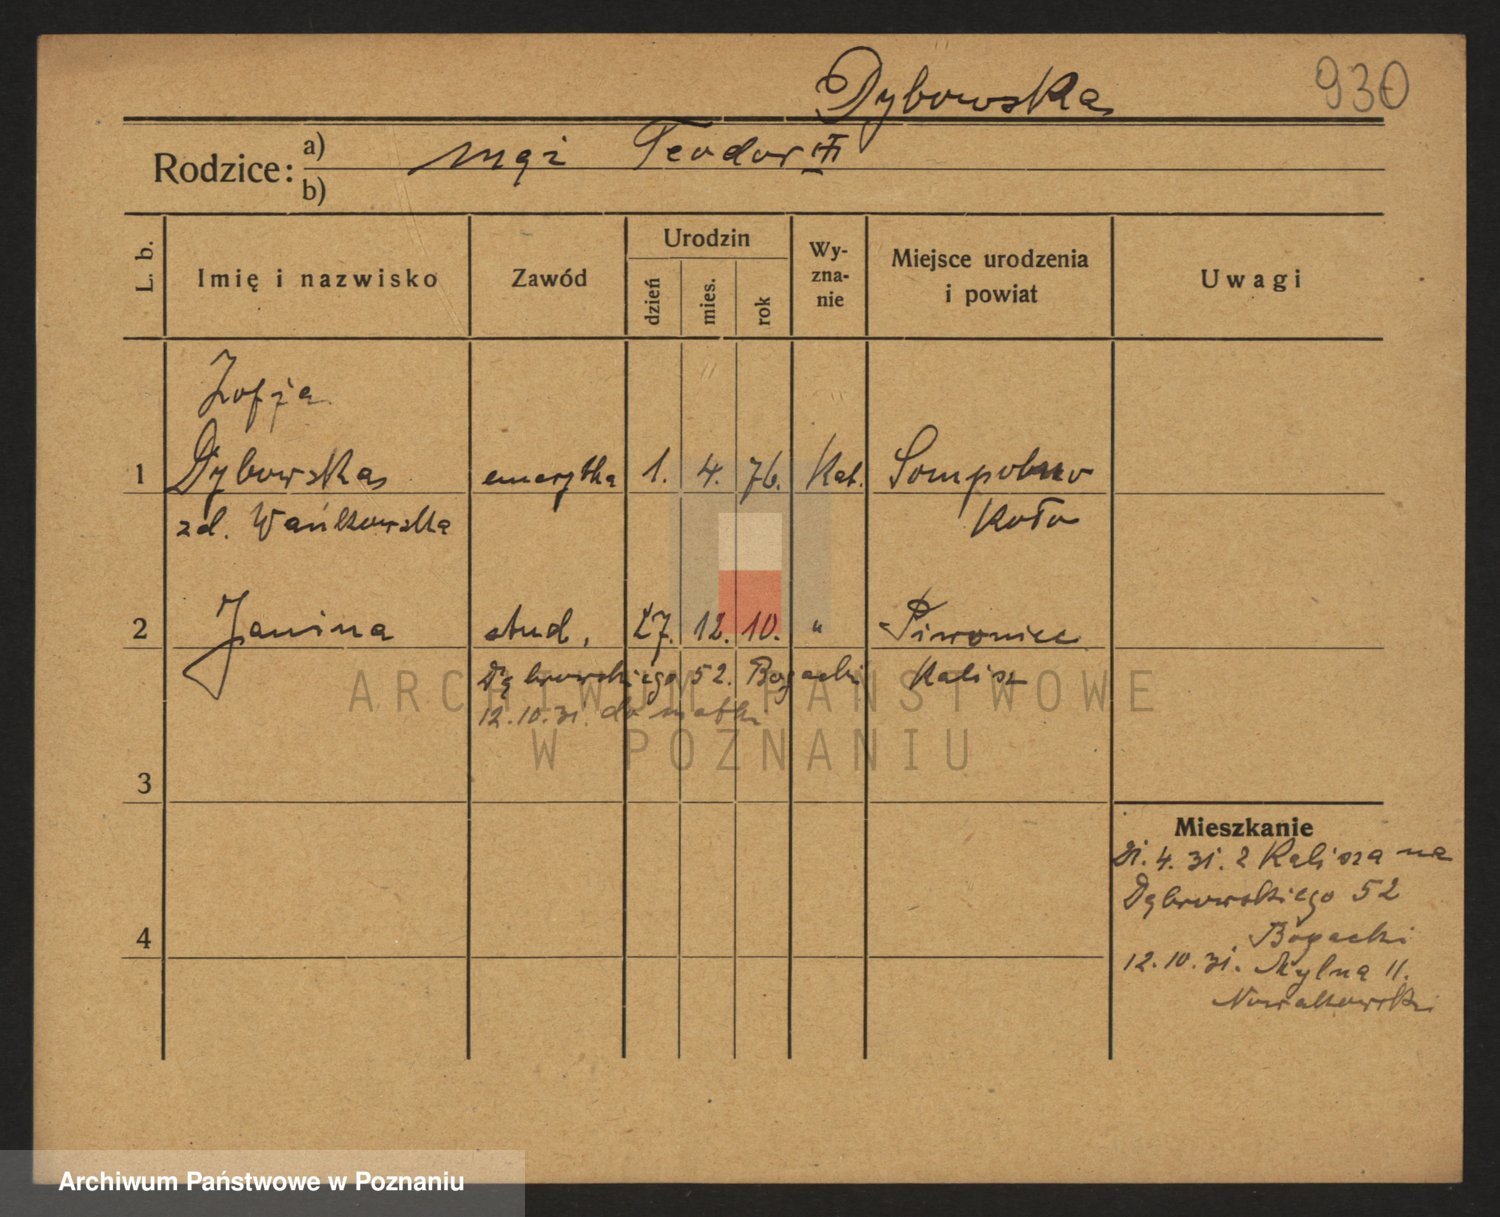 Dybowska
930
Rodzice:
a) mąż Teodor
b)
L. b.
Imię i nazwisko
Zawód
Urodzin
dzień
mies.
rok
Wy-
zna-
nie
Miejsce urodzenia
i powiat
Uwagi
Zofja
1 Dybowska emerytka 1. 4. 76. Kat. Sompolno
zd. Wańkowska Koło
2 Janina stud. 27. 12. 10. " Piwonice
Dąbrowskiego 52. Bogacki Kalisz
12.10.31. do matki
3
4
Mieszkanie
21. 4. 31. z Kalisza na
Dąbrowskiego 52
Bogacki
12.10.31. Mylna 11.
Nowakowski
ARCHIWUM PAŃSTWOWE
W POZNANIU
Archiwum Państwowe w Poznaniu